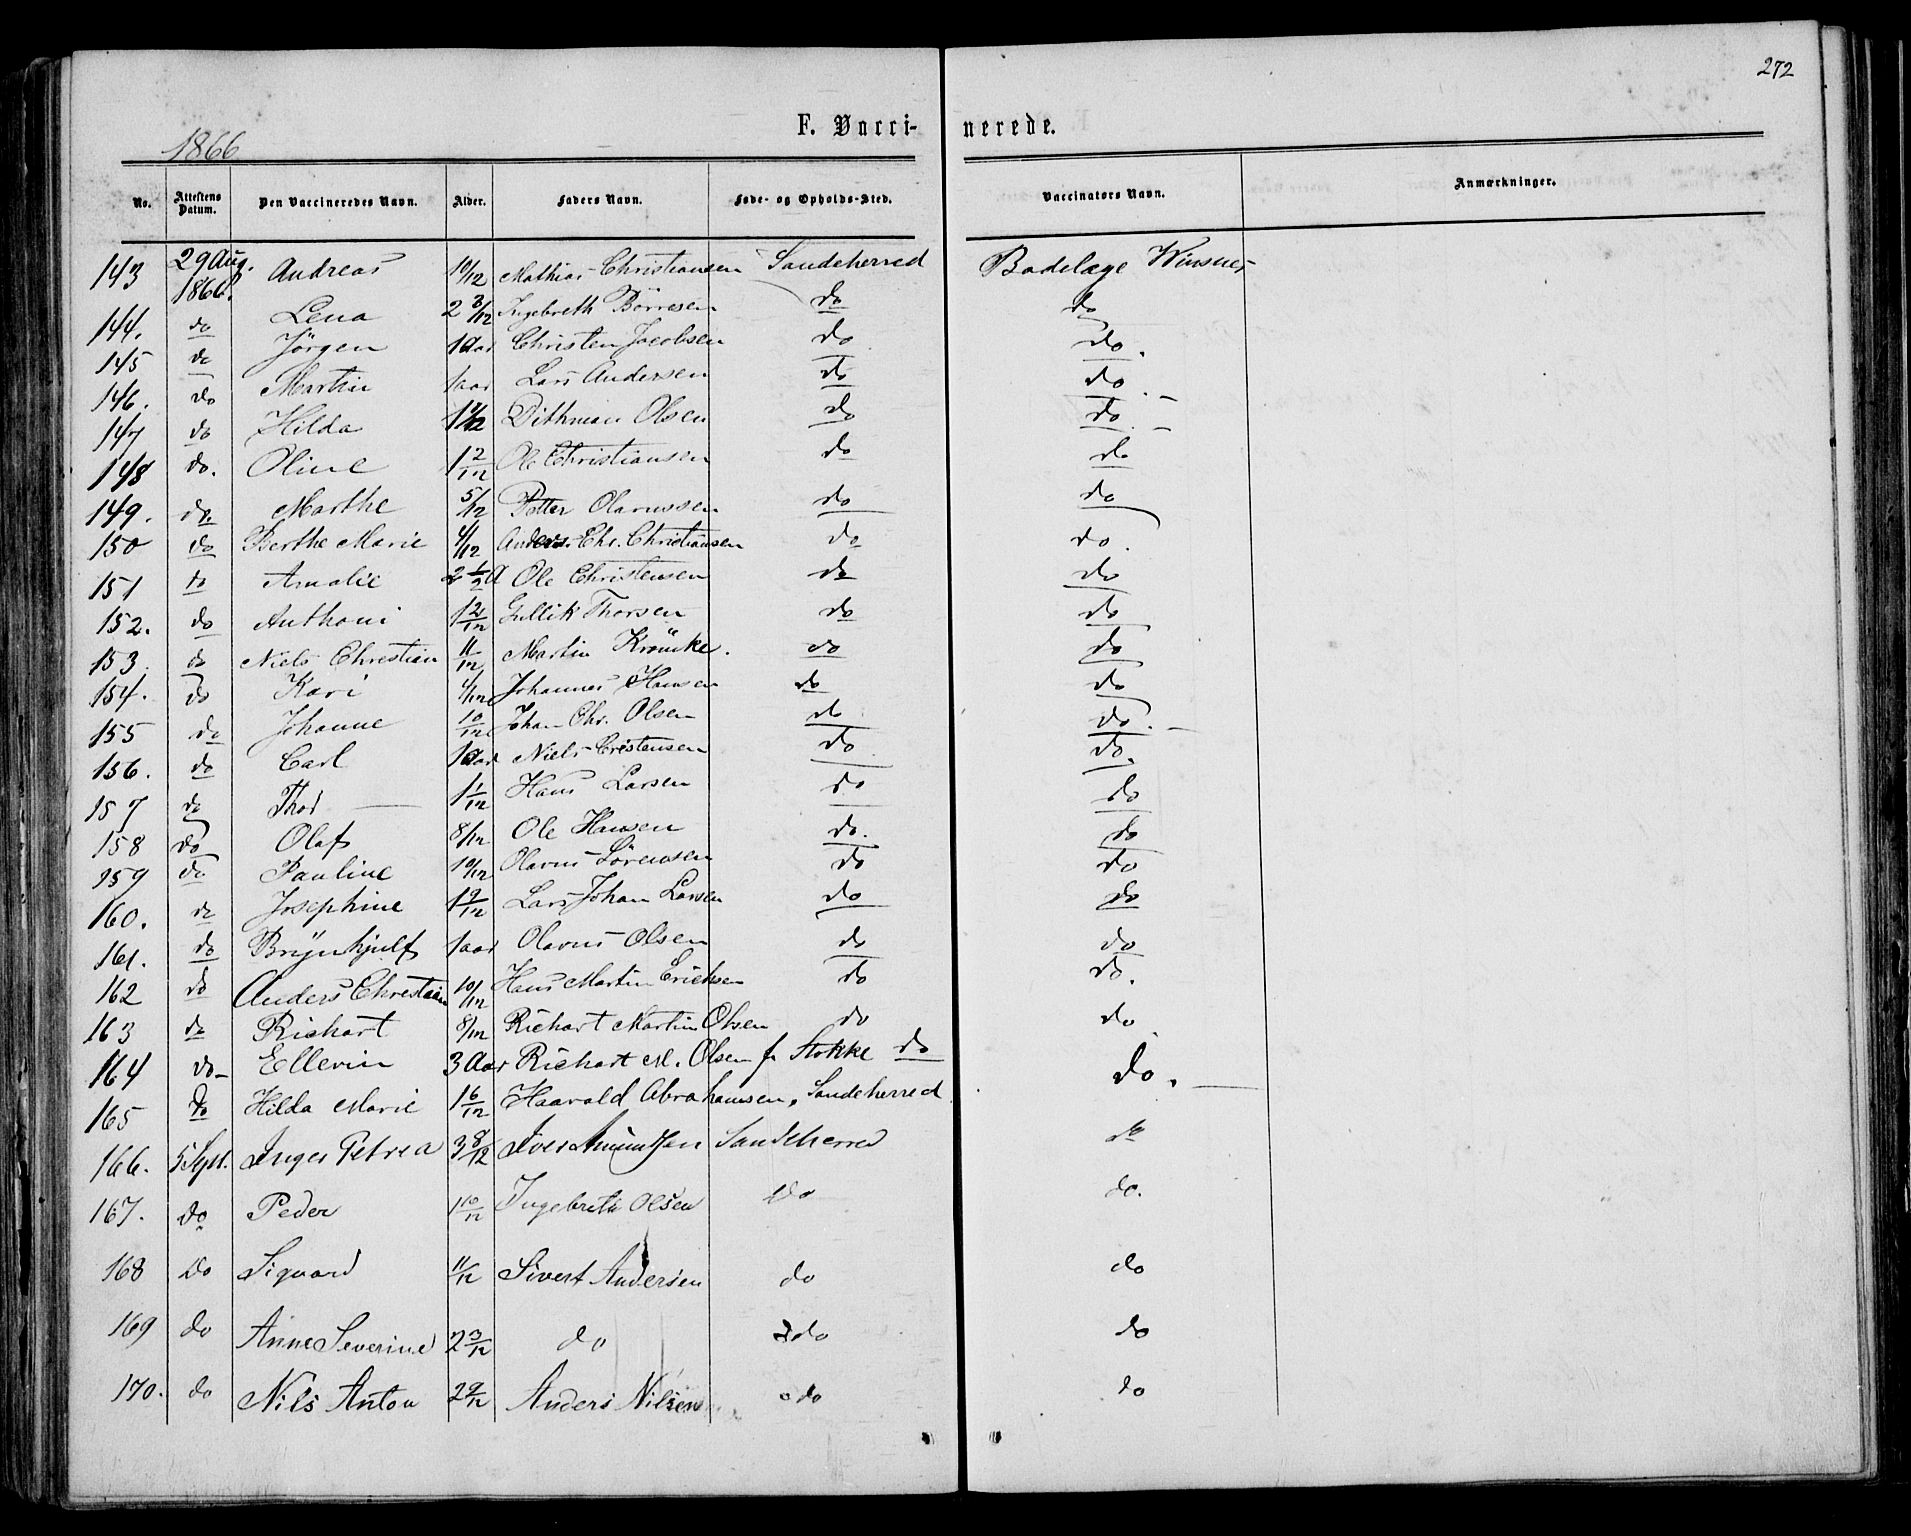 272
F. Vacci- nerede.
1866
No. Attestens Datum. Den Vaccineredes Navn. Alder. Faders Navn. Føde- og Opholds-Sted. Vaccinators Navn. Anmærkninger.
143 29 Aug. 1866. Andreas 10/12 Mathias Christiansen Sandeherred Badelæge
144. do Lena 2 3/12 Ingebreth Börresen do do
145 do Jörgen 1 aar Christen Jacobsen do do.
146. do Martin 1 aar Lars Andersen do do
147 do Hilda Dithman Olsen do do
148 do. Oline 1 2/12 Ole Christiansen do do
149. do. Marthe 5/12 Petter Olavussen do do
150 do Berthe Marie 4/12 Anders Chr. Christiansen do do.
151 do Amalie 2 1/2 A Ole Christensen do do
152. do Anthoni 1 2/12 Gullik Thorsen do do
153. do Niels Christian 11/12 Martin Krömke. do do
154. do Kari 4/12 Johannes Hansen do do
155 do Johanne 10/12 Johan Chr. Olsen do do.
156. do Carl 1 aar Niels Cristensen do do.
157 do Thor 1 1/12 Hans Larsen do do
158 do Olaf 8/12 Ole Hansen do. do
159 do Pauline 10/12 Olavus Sörensen do do
160. do Josephine 1 9/12 Lars Johan Larsen do do
161. do Brynhjulf 1 aar Olavus Olsen do do
162 do Anders Christian 10/12 Hans Martin Erichsen do do.
163 do Richart 8/12 Richart Martin Olsen do do
164 do Ellevin 3 Aar Richart M. Olsen fr Stokke do do.
165 do Hilda Marie 1 6/12 Haarald Abrahamsen, Sandeherred
166. 5 Sept. Inger Petrea 3 8/12 Iver Amundsen Sandeherred do
167. do Peder 1 10/12 Ingebrith Olsen do do.
168 do Siguard 11/12 Sivert Andersen do do
169 do Anne Severine 2 3/12 do do do
170. do Nils Anton 2 9/12 Anders Nilsen do do